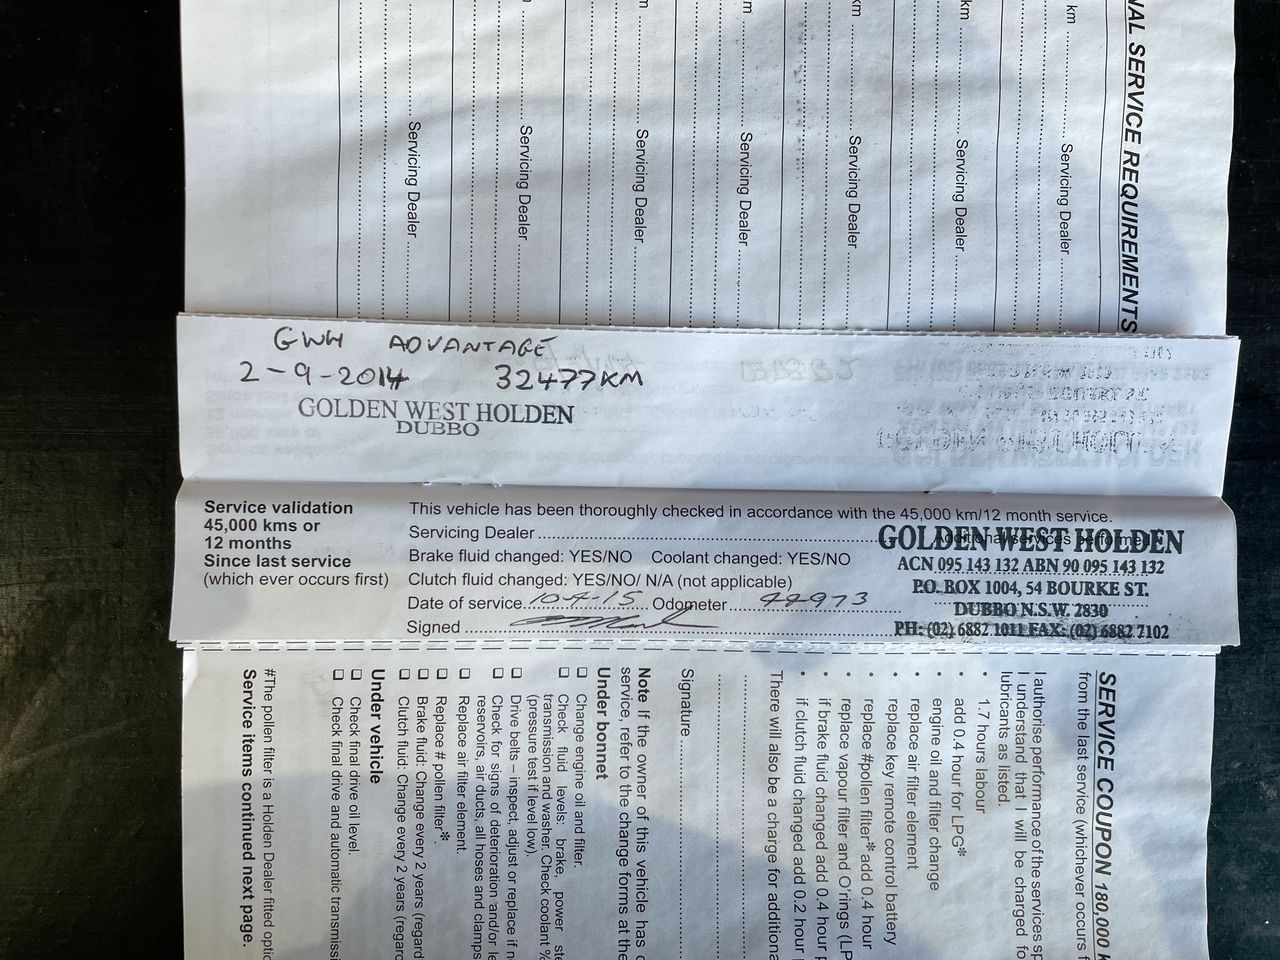 NAL SERVICE REQUIREMENTS
km
Servicing Dealer
km
Servicing Dealer
km
Servicing Dealer
m
Servicing Dealer
m
Servicing Dealer
Servicing Dealer
Servicing Dealer
GWH ADVANTAGE
2-9-2014 32477KM
GOLDEN WEST HOLDEN
DUBBO
Service validation
45,000 kms or
12 months
Since last service
(which ever occurs first)
This vehicle has been thoroughly checked in accordance with the 45,000 km/12 month service.
Servicing Dealer
Additional services performed
Brake fluid changed: YES/NO Coolant changed: YES/NO
Clutch fluid changed: YES/NO/ N/A (not applicable)
Date of service 10-4-15 Odometer 44973
Signed
GOLDEN WEST HOLDEN
ACN 095 143 132 ABN 90 095 143 132
P.O. BOX 1004, 54 BOURKE ST.
DUBBO N.S.W. 2830
PH: (02) 6882 1011 FAX: (02) 6882 7102
SERVICE COUPON 180,000 k
from the last service (whichever occurs f
I authorise performance of the services sp
I understand that I will be charged fo
lubricants as listed.
• 1.7 hours labour
• add 0.4 hour for LPG*
• engine oil and filter change
• replace air filter element
• replace key remote control battery
• replace #pollen filter* add 0.4 hour
• replace vapour filter and O'rings (LP
• if brake fluid changed add 0.4 hour p
• if clutch fluid changed add 0.2 hour p
There will also be a charge for additiona
Signature
Note If the owner of this vehicle has c
service, refer to the change forms at the
Under bonnet
❑ Change engine oil and filter.
❑ Check fluid levels: brake, power ste
transmission and washer. Check coolant %
(pressure test if level low).
❑ Drive belts – inspect, adjust or replace if n
❑ Check for signs of deterioration and/or le
reservoirs, air ducts, all hoses and clamps
❑ Replace air filter element.
❑ Replace # pollen filter*
❑ Brake fluid: Change every 2 years (regard
❑ Clutch fluid: Change every 2 years (regard
Under vehicle
❑ Check final drive oil level.
❑ Check final drive and automatic transmissi
#The pollen filter is a Holden Dealer fitted optio
Service items continued next page.